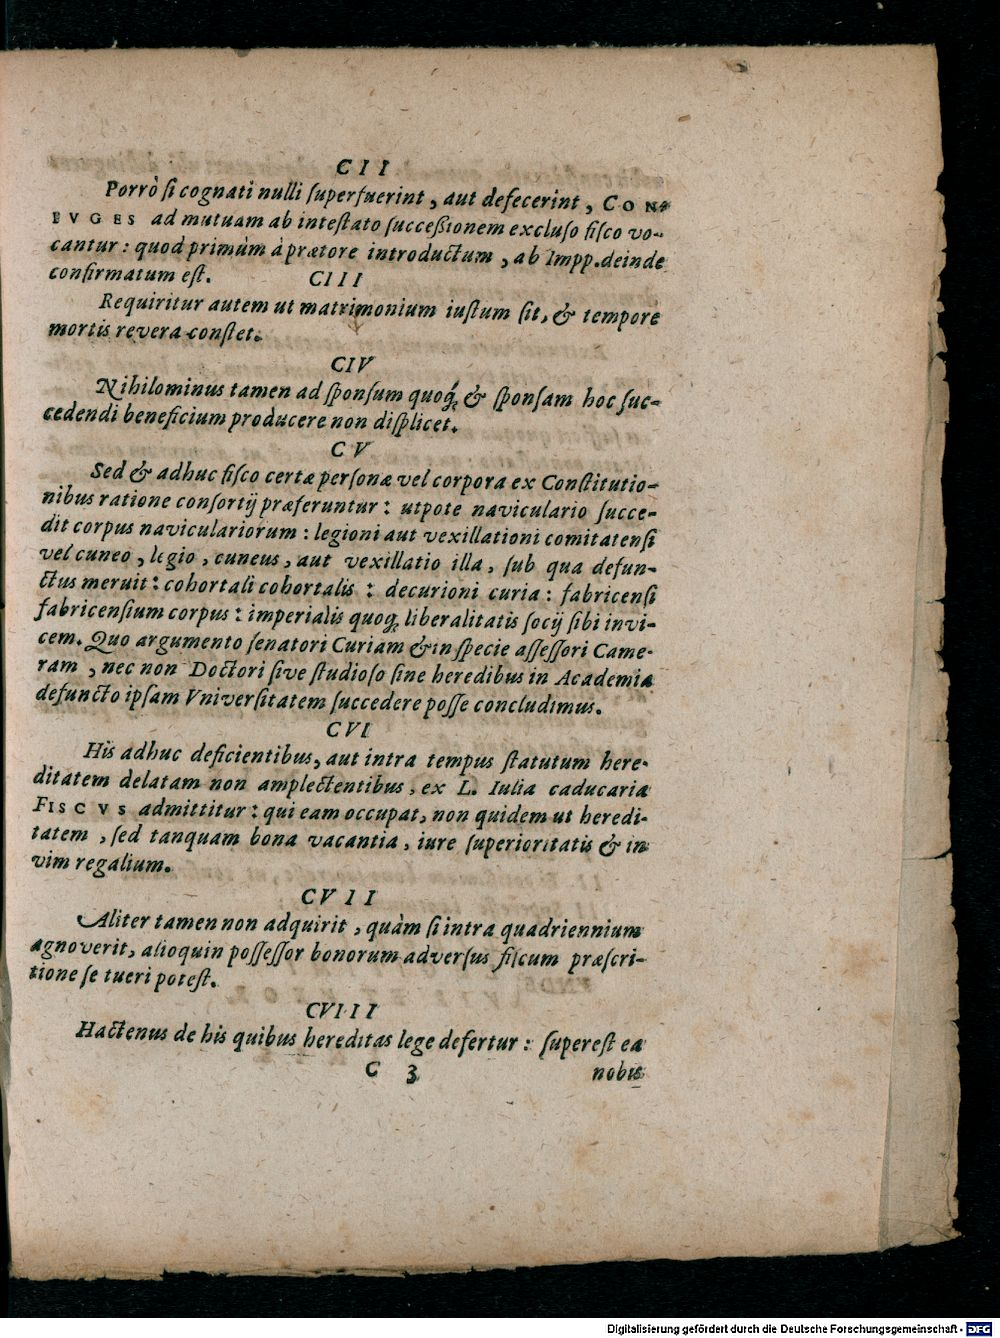 CII
Porrò si cognati nulli superfuerint, aut defecerint, CON-
IVGES ad mutuam ab intestato successionem excluso fisco vo-
cantur: quod primùm à prætore introductum, ab Impp. deinde
confirmatum est. CIII
Requiritur autem ut matrimonium iustum sit, & tempore
mortis revera constet.
CIV
Nihilominus tamen ad sponsum quoq́; & sponsam hoc suc-
cedendi beneficium producere non displicet.
CV
Sed & adhuc fisco certæ personæ vel corpora ex Constitutio-
nibus ratione consortij præferuntur: utpote naviculario succe-
dit corpus naviculariorum: legioni aut vexillationi comitatensi
vel cuneo, legio, cuneus, aut vexillatio illa, sub qua defun-
ctus meruit: cohortali cohortalis: decurioni curia: fabricensi
fabricensium corpus: imperialis quoq; liberalitatis socij sibi invi-
cem. Quo argumento senatori Curiam & in specie assessori Came-
ram, nec non Doctori sive studioso sine heredibus in Academia
defuncto ipsam Vniversitatem succedere posse concludimus.
CVI
His adhuc deficientibus, aut intra tempus statutum here-
ditatem delatam non amplectentibus, ex L. Iulia caducaria
FISCVS admittitur: qui eam occupat, non quidem ut heredi-
tatem, sed tanquam bona vacantia, iure superioritatis & in
vim regalium.
CVII
Aliter tamen non adquirit, quàm si intra quadriennium
agnoverit, alioquin possessor bonorum adversus fiscum præscri-
tione se tueri potest.
CVIII
Hactenus de his quibus hereditas lege defertur: superest ea
C 3 nobis
Digitalisierung gefördert durch die Deutsche Forschungsgemeinschaft - DFG